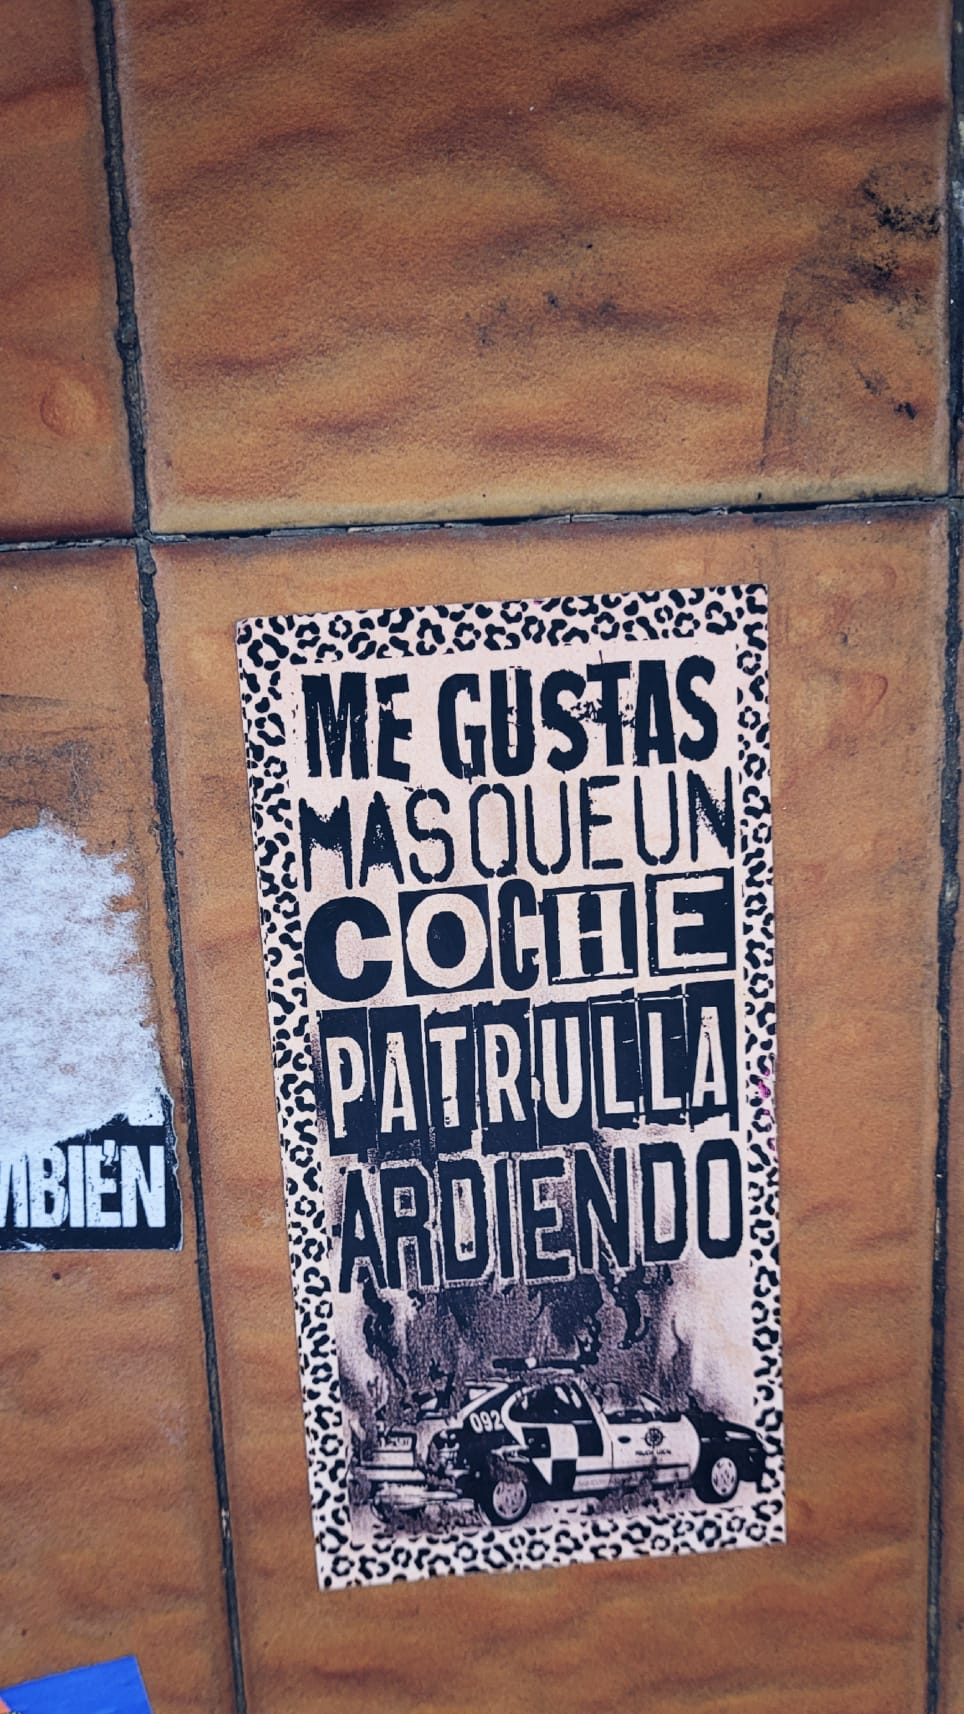 ME GUSTAS
MAS QUE UN
COCHE
PATRULLA
ARDIENDO
092
MBIÉN